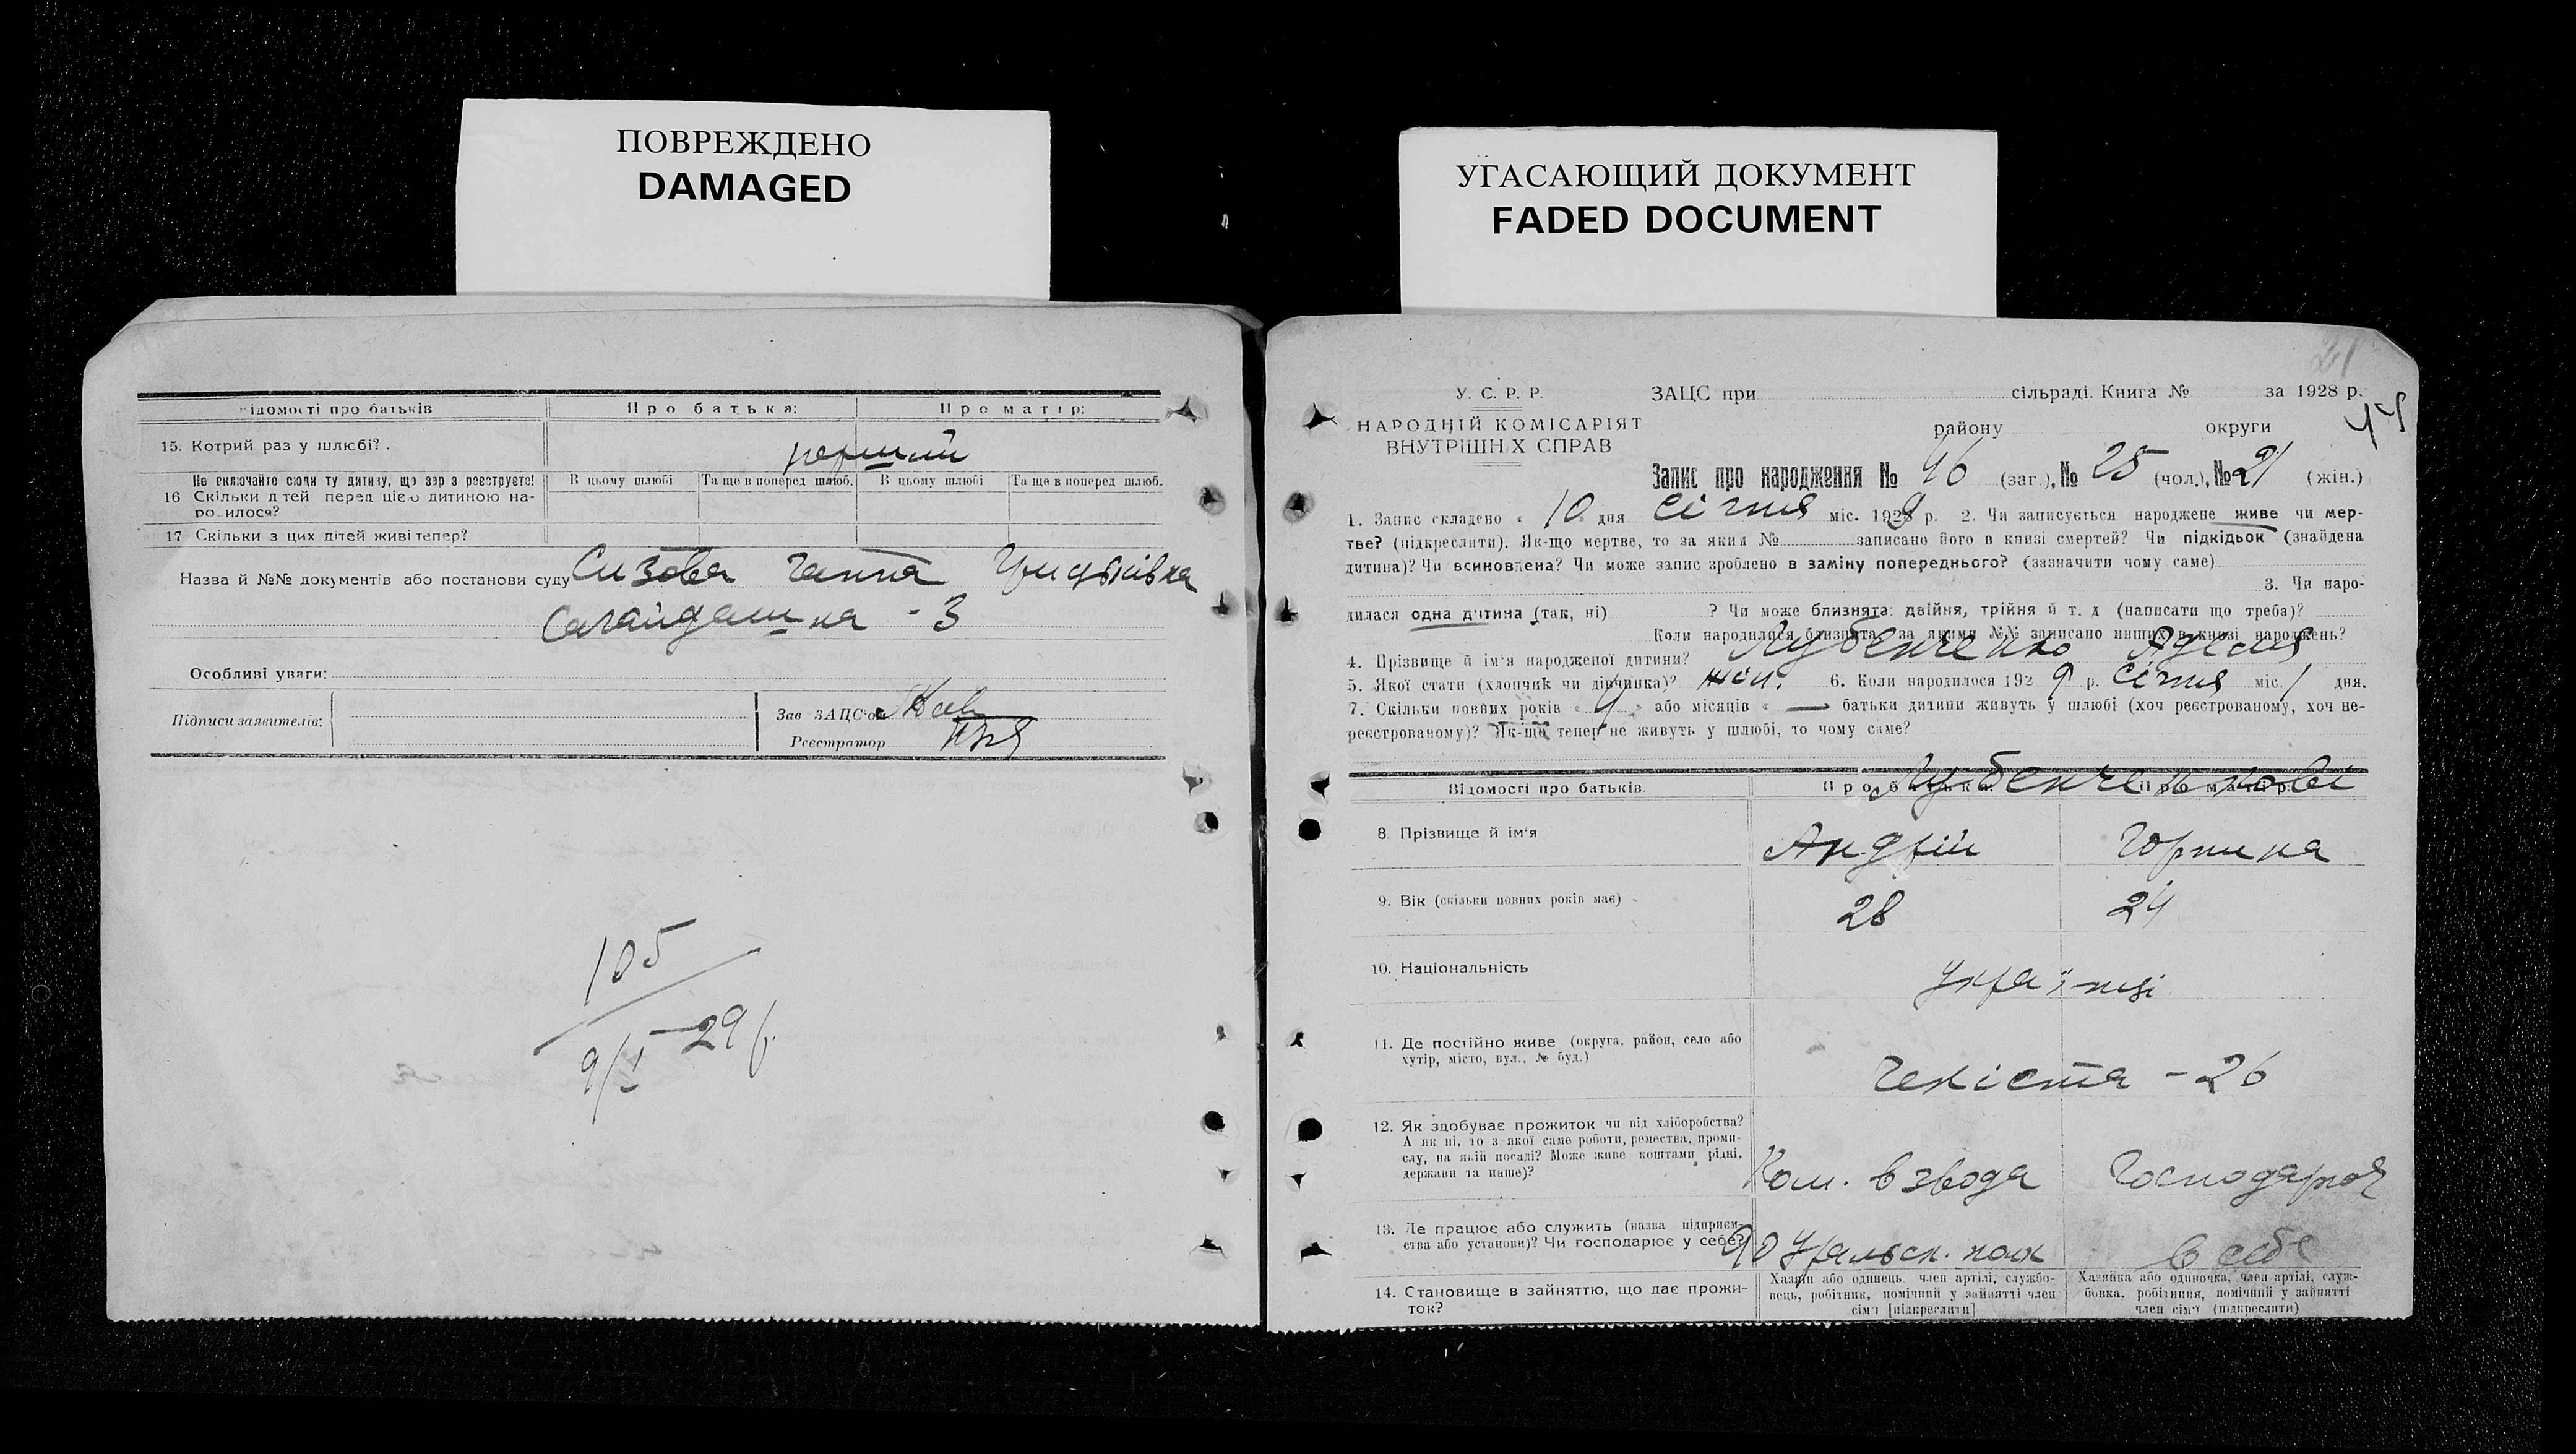 ПОВРЕЖДЕНО
DAMAGED
УГАСАЮЩИЙ ДОКУМЕНТ
FADED DOCUMENT
ідомості про батьків
Про батька:
Про матір:
15. Котрий раз у шлюбі?
перший
Не включайте сюди ту дитину, що зар з реєструєте!
16 Скільки дітей перед цією дитиною народилося?
В цьому шлюбі
Та ще в поперед шлюб.
В цьому шлюбі
Та ще в поперед шлюб.
17 Скільки з цих дітей живі тепер?
Назва й №№ документів або постанови суду Сизова Ганна
Сагайдашна - 3
Особливі уваги:
Підписи заявителів:
Зав ЗАЦС'ом
Реєстратор
105
9/I - 29 р.
21
У. С. Р. Р.
НАРОДНІЙ КОМІСАРІЯТ
ВНУТРІШНІХ СПРАВ
ЗАЦС при сільраді. Книга № за 1928 р.
району округи
44
Запис про народження № 46 (заг.), № 25 (чол.), № 21 (жін.)
1. Запис складено « 10 » дня Січня міс. 1929 р. 2. Чи записується народжене живе чи мер-
тве? (підкреслити). Як-що мертве, то за яким № записано його в книзі смертей? Чи підкідьок (знайдена
дитина)? Чи всиновлена? Чи може запис зроблено в заміну попереднього? (зазначити чому саме)
3. Чи наро-
дилася одна дитина (так, ні) ? Чи може близнята: двійня, трійня й т. д (написати що треба)?
Коли народилися близнята, за якими №№ записано инших в книзі народжень?
4. Прізвище й ім'я народженої дитини? Лубенченко Аделя
5. Якої стати (хлопчик чи дівчинка)? жін. 6. Коли народилося 1929 р. Січня міс. 1 дня.
7. Скільки повних років « 4 » або місяців « — » батьки дитини живуть у шлюбі (хоч реєстрованому, хоч не-
реєстрованому)? Як-що тепер не живуть у шлюбі, то чому саме?
Відомості про батьків.
Про батька:
Про матір:
Лубенченкові
8. Прізвище й ім'я
Андрій
Горпина
9. Вік (скільки повних років має)
28
24
10. Національність
українці
11. Де постійно живе (округа, район, село або
хутір, місто, вул., № буд.)
Чекіста - 26
12. Як здобуває прожиток чи від хліборобства?
А як ні, то з якої саме роботи, ремества, проми-
слу, на якій посаді? Може живе коштами рідні,
держави та инше)?
Ком. взвода
Господарює
13. Де працює або служить (назва підприєм-
ства або установи)? Чи господарює у себе?
90 Уральск. полк
в себе
14. Становище в зайняттю, що дає прожи-
ток?
Хазяїн або одинець, член артілі, службо-
вець, робітник, помічний у зайнятті член
сім'ї [підкреслити]
Хазяйка або одиночка, член артілі, служ-
бовка, робітниця, помічний у зайнятті
член сім'ї (підкреслити)